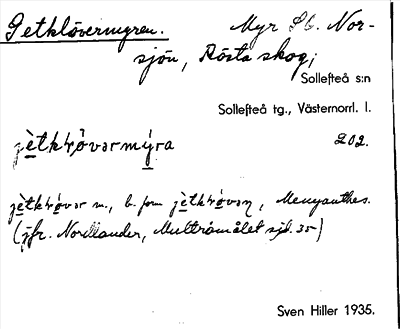 Getklövermyren. Myr S b. Nor-
sjön, Rösta skog;
Sollefteå s:n
Sollefteå tg., Västernorrl. l.
jètkḷø̀vərmýra 202.
jètkḷø̀vər m., b. form jètkḷø̀vəṇ, Menyanthes.
(jfr. Nordlander, Multråmålet sid. 35)
Sven Hiller 1935.